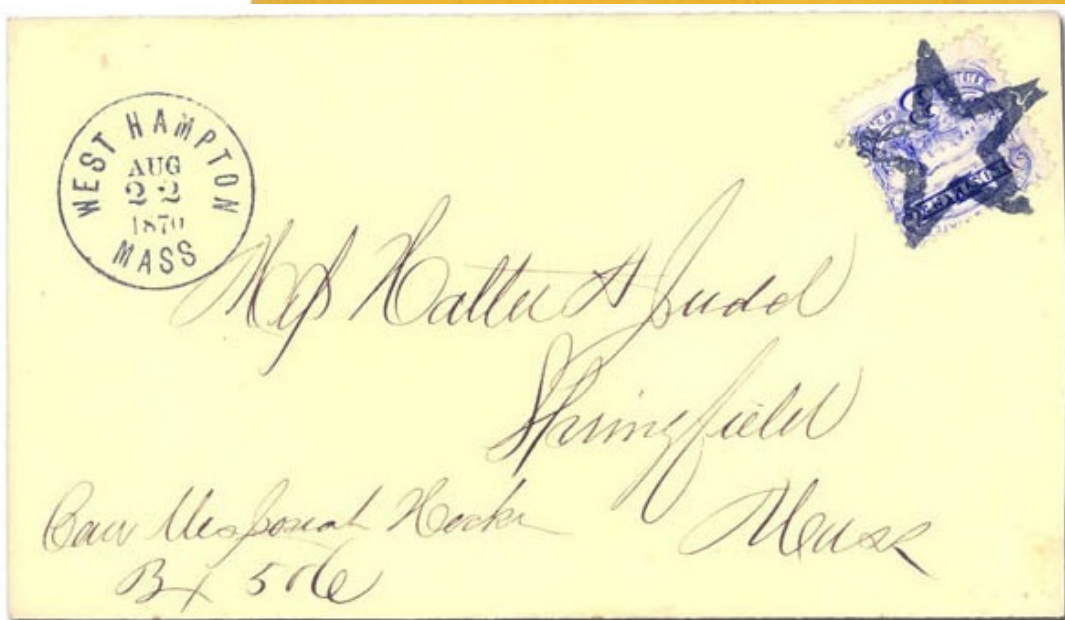 WEST HAMPTON
AUG
22
1870
MASS
Miss Hattie A Judd
Springfield
Mass
Care Mes Josiah
Bx 506